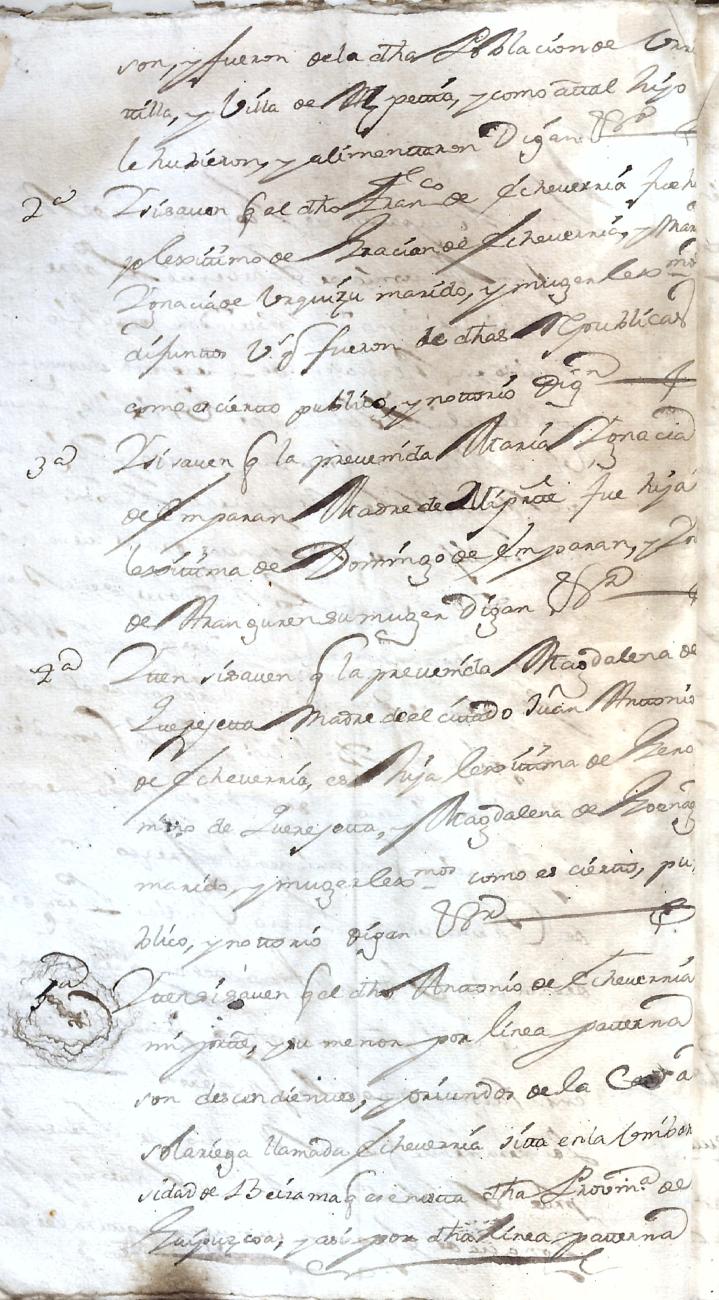 son, y fueron de la dha Poblacion de Urr
tilla, y Villa de Azpettia, y como a ttal hijo
le hubieron, y alimenttaron Digan &ra
2a Yttsi saven q el dho Franco de Echeverria fue h
jo lexittimo de Gracian de Echeverria, y Mar
Ygnacia de Urquizu marido, y muger lexmos
difunttos Vs q fueron de dhas Republicas
como es ciertto publico, y nottorio Dign
3a Yttsi saven q la prevenida Maria Ygnacia
de Emparan Madre de Mi partte fue hija
lexittima de Domingo de Emparan, y
de Aranguren su muger Digan &ra
4a Ytten si saven q la prevenida Magdalena de
Querejetta Madre de el cittado Juan Anttonio
de Echeverria, es hija lexittima de Gero
nimo de Querejetta, y Magdalena de Goenag
marido, y muger lexmos como es ciertto, pu
blico, y nottorio digan &ra
5a Ytten si saven q el dho Anttonio de Echeverria
mi partte, y su menor por linea patterna
son descendienttes, y oriundos de la Cassa
solariega llamada Echeverria sitta en la Uniber
sidad de Beizama q es en estta dha Provina de
Guipuzcoa, y asi por dha linea patterna